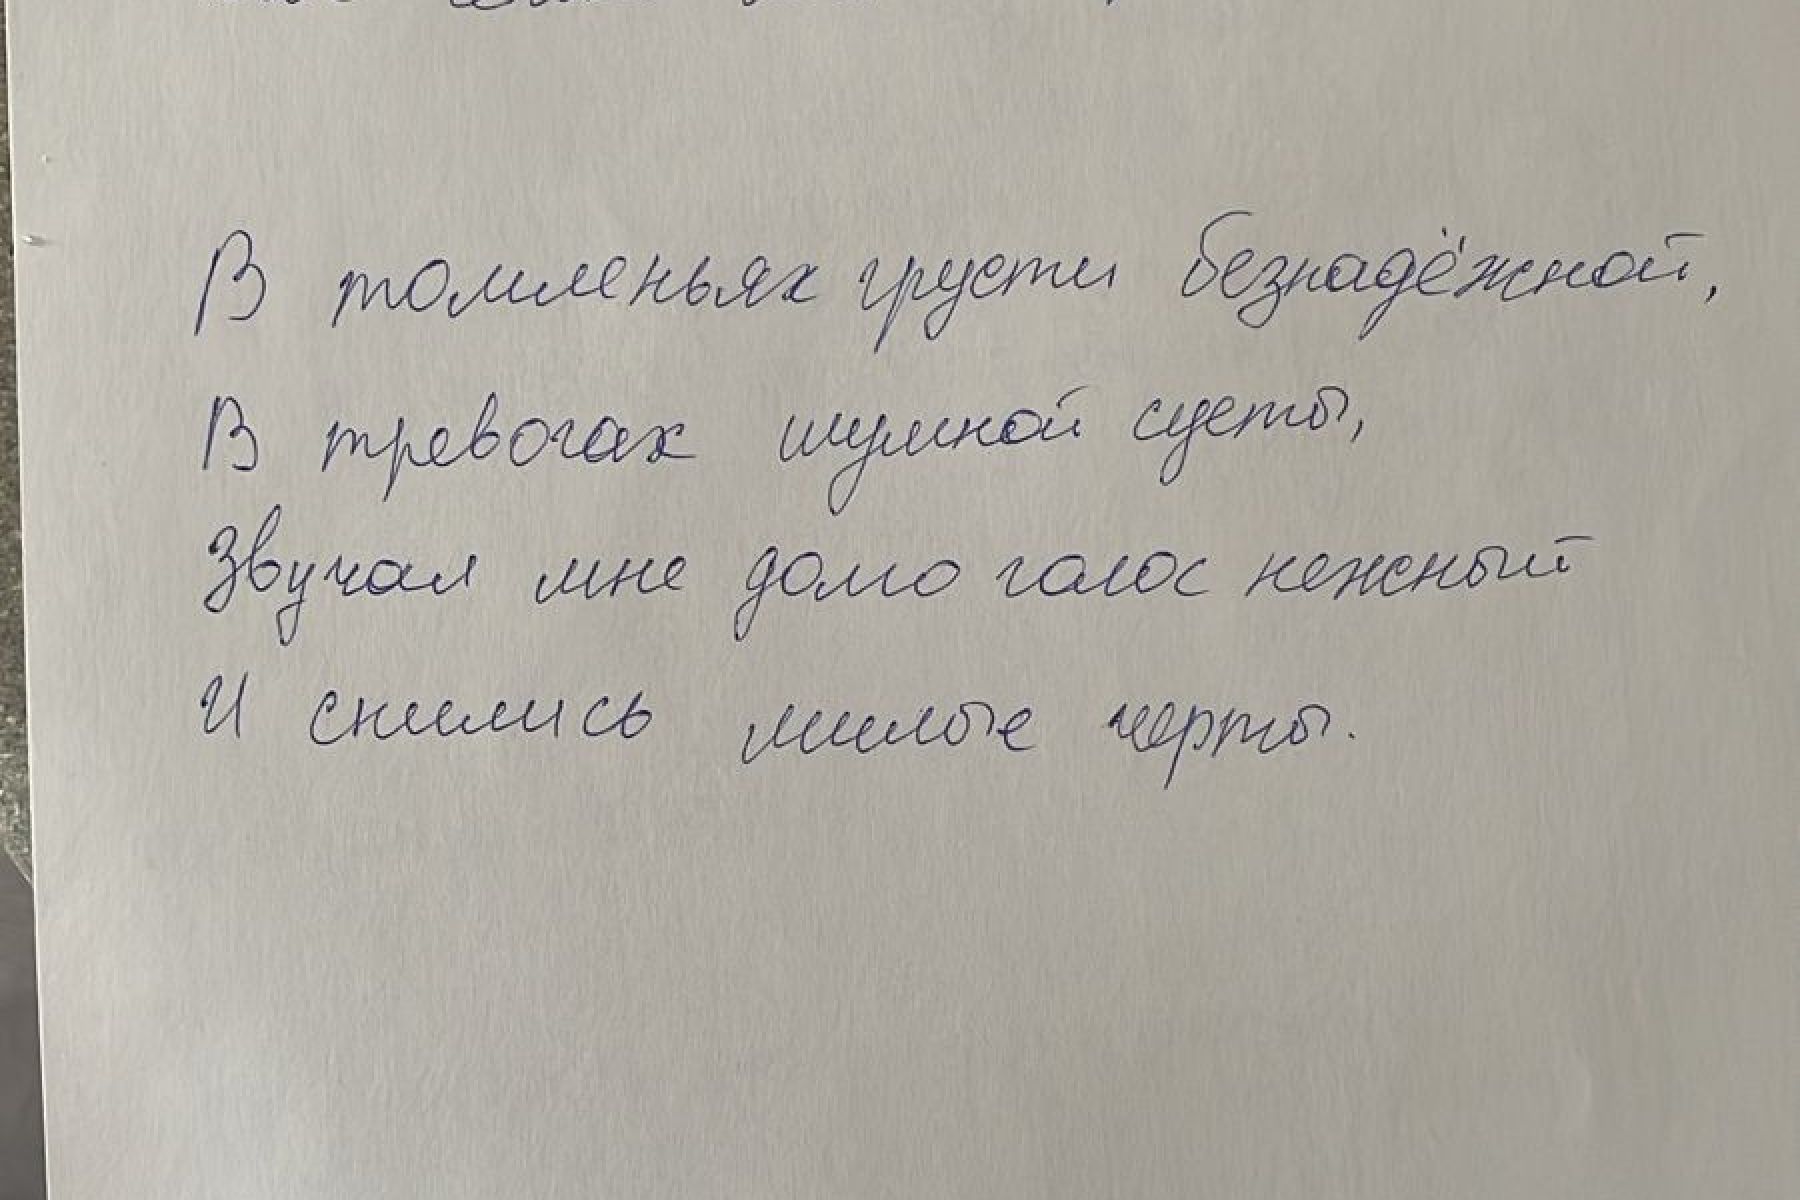 В томленьях грусти безнадёжной,
В тревогах шумной суеты,
Звучал мне домо голос нежный
И снились милые черты.